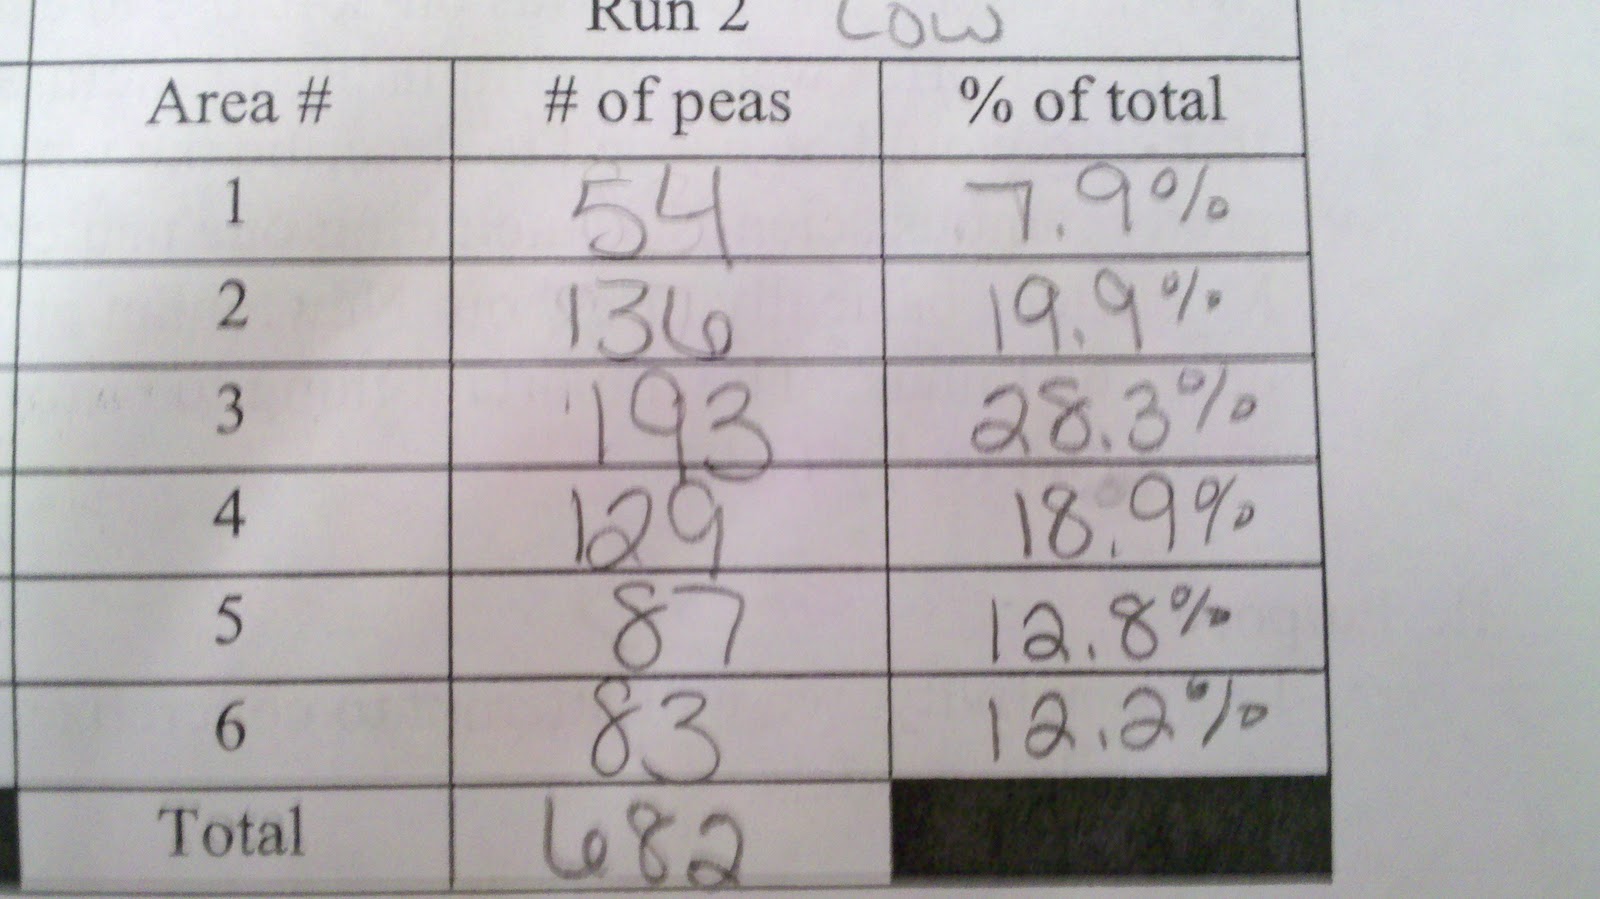 Run 2 Low
Area # # of peas % of total
1 54 7.9%
2 136 19.9%
3 193 28.3%
4 129 18.9%
5 87 12.8%
6 83 12.2%
Total 682